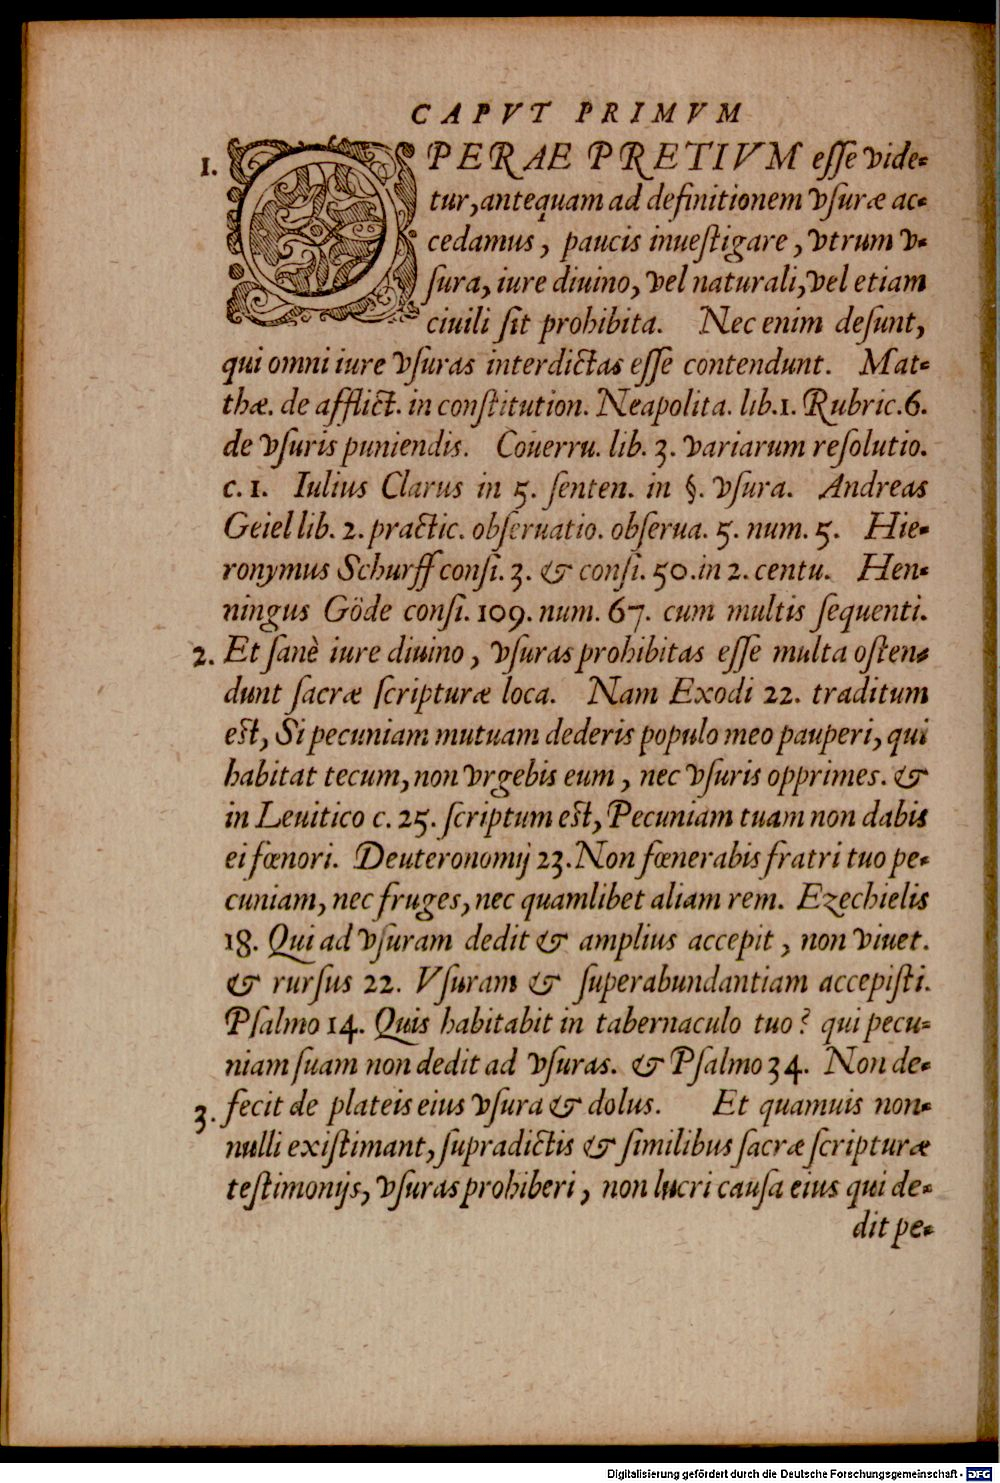 CAPVT PRIMVM
1. OPERAE PRETIVM eſſe vide-
tur, antequam ad definitionem vſuræ ac-
cedamus, paucis inueſtigare, vtrum v-
ſura, iure diuino, vel naturali, vel etiam
ciuili ſit prohibita. Nec enim deſunt,
qui omni iure vſuras interdictas eſſe contendunt. Mat-
thæ. de afflict. in conſtitution. Neapolita. lib.1. Rubric.6.
de vſuris puniendis. Couerru. lib. 3. variarum reſolutio.
c. 1. Iulius Clarus in 5. ſenten. in §. vſura. Andreas
Geiel lib. 2. practic. obſeruatio. obſerua. 5. num. 5. Hie-
ronymus Schurff conſi. 3. & conſi. 50. in 2. centu. Hen-
ningus Göde conſi. 109. num. 67. cum multis ſequenti.
2. Et ſanè iure diuino, vſuras prohibitas eſſe multa oſten-
dunt ſacræ ſcripturæ loca. Nam Exodi 22. traditum
eſt, Si pecuniam mutuam dederis populo meo pauperi, qui
habitat tecum, non vrgebis eum, nec vſuris opprimes. &
in Leuitico c. 25. ſcriptum eſt, Pecuniam tuam non dabis
ei fœnori. Deuteronomij 23. Non fœnerabis fratri tuo pe-
cuniam, nec fruges, nec quamlibet aliam rem. Ezechielis
18. Qui ad vſuram dedit & amplius accepit, non viuet.
& rurſus 22. Vſuram & ſuperabundantiam accepiſti.
Pſalmo 14. Quis habitabit in tabernaculo tuo? qui pecu-
niam ſuam non dedit ad vſuras. & Pſalmo 34. Non de-
3. fecit de plateis eius vſura & dolus. Et quamuis non-
nulli exiſtimant, ſupradictis & ſimilibus ſacræ ſcripturæ
teſtimonijs, vſuras prohiberi, non lucri cauſa eius qui de-
dit pe-
Digitalisierung gefördert durch die Deutsche Forschungsgemeinschaft - DFG